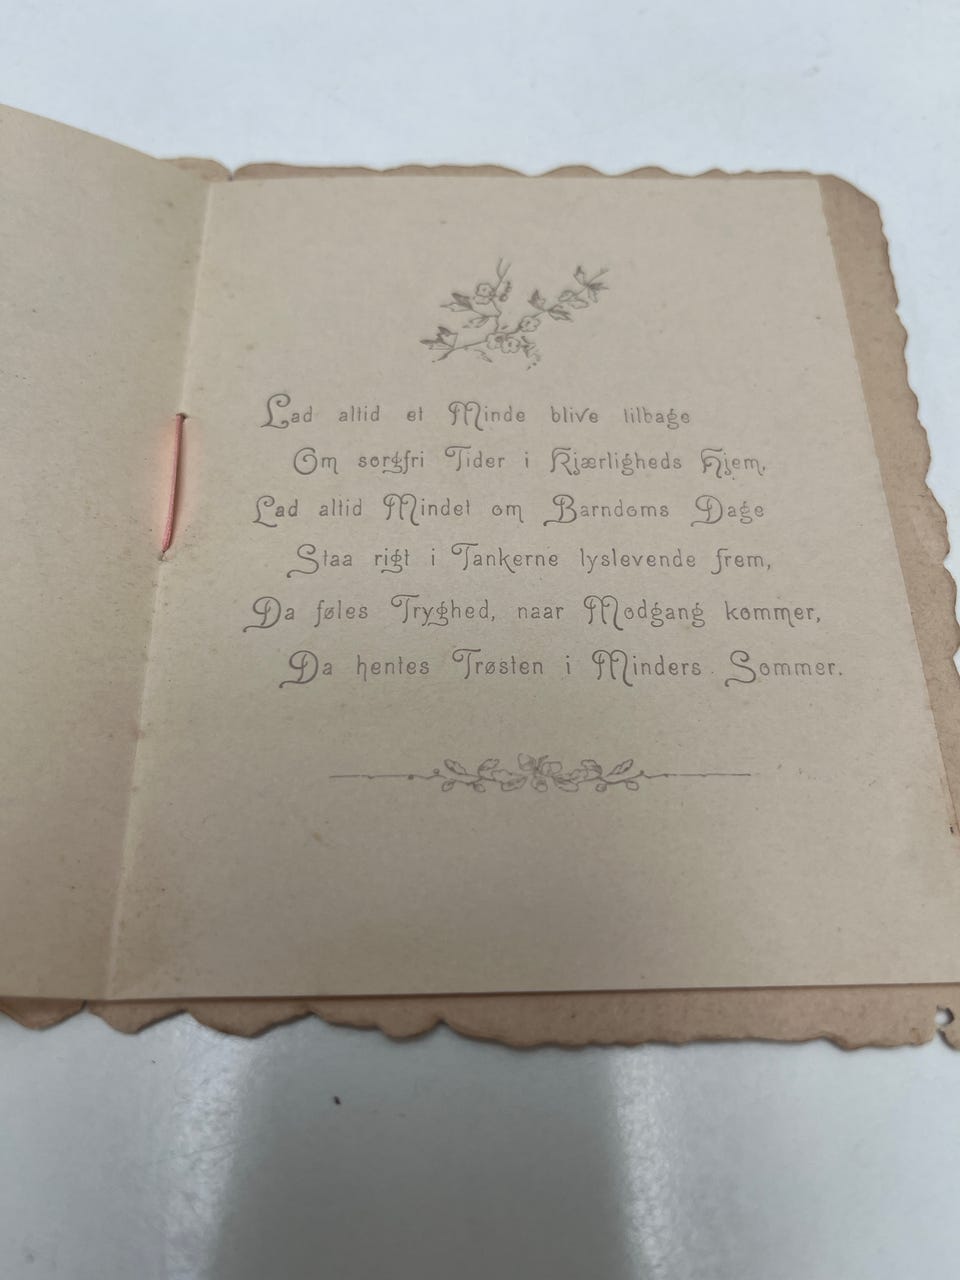 Lad altid et Minde blive tilbage
Om sorgfri Tider i Kjærligheds Hjem,
Lad altid Mindet om Barndoms Dage
Staa rigt i Tankerne lyslevende frem,
Da føles Tryghed, naar Modgang kommer,
Da hentes Trøsten i Minders Sommer.